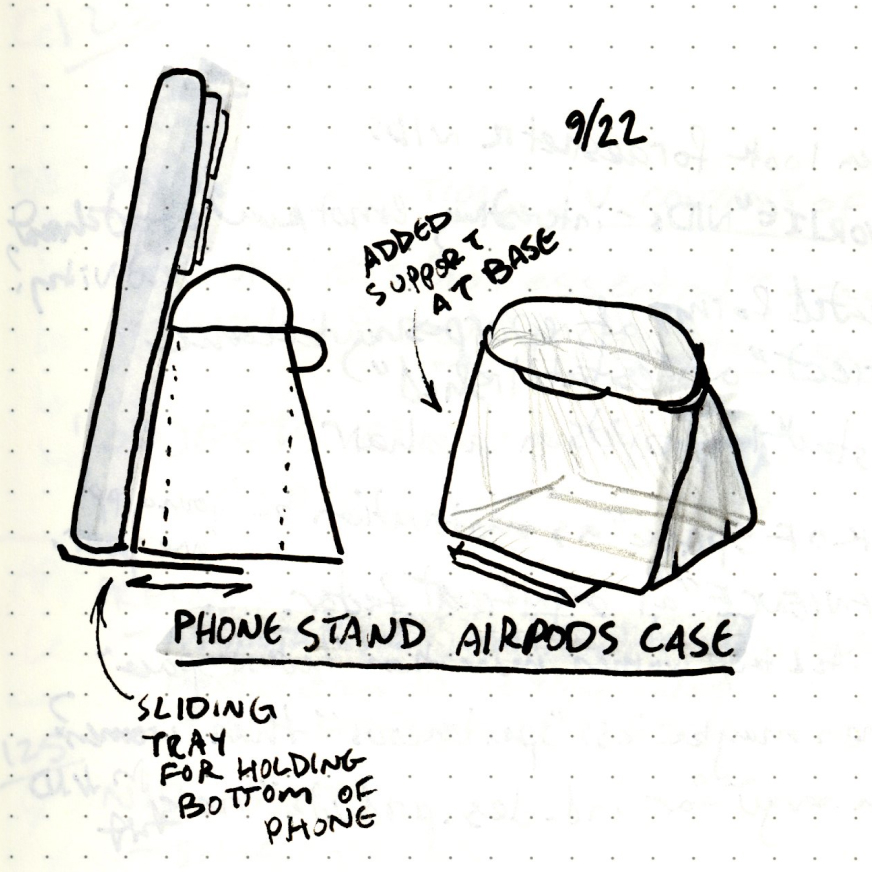 9/22
ADDED
SUPPORT
AT BASE
PHONE STAND AIRPODS CASE
SLIDING
TRAY
FOR HOLDING
BOTTOM OF
PHONE